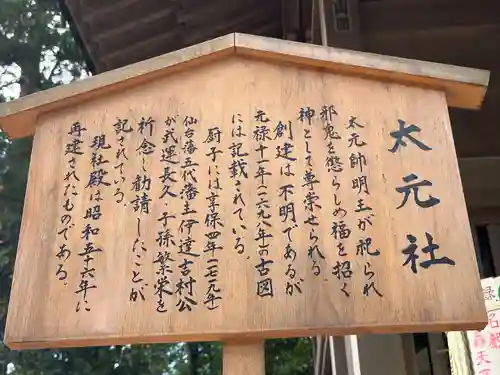 太元社
太元帥明王が祀られ
邪鬼を懲らしめ福を招く
神として尊崇せられる。
創建は不明であるが
元禄十一年(一六九八年)の古図
には記載されている。
厨子には享保四年(一七一九年)
仙台藩五代藩主伊達吉村公
が武運長久・子孫繁栄を
祈念し勧請したことが
記されている。
現社殿は昭和五十六年に
再建されたものである。